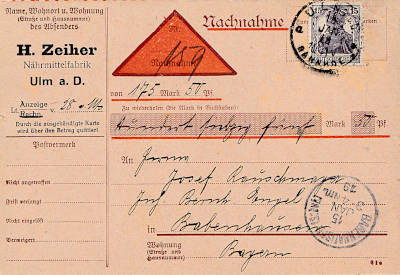 Name, Wohnort u. Wohnung
(Straße und Hausnummer)
des Absenders
H. Zeiher
Nährmittelfabrik
Ulm a. D.
Nachnahme
Nr.
159
Nachnahme
15
15
von 175 Mark 50 Pf
Zu wiederholen (die Mark in Buchstaben)
Anzeige
Lt. Rechn. v. 28.
Durch die ausgehändigte Karte
wird über den Betrag quittiert!
Hundert siebzig fünf Mark 50 Pf
Postvermerk
An
Firma
Nicht angetroffen
Josef Rauschmayr
Frist verlangt
Inh. Bernh. Engel
Nicht eingelöst
in Babenhausen
Verweigert
Wohnung
(Straße und
Hausnummer)
Bayern
15
JAN
19